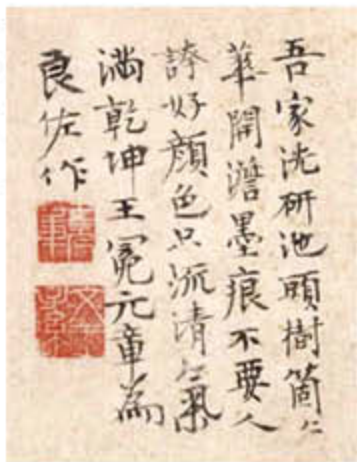 吾家洗研池頭樹箇〻
華開澹墨痕不要人
誇好顔色只流清氣
滿乾坤王冕元章為
良佐作